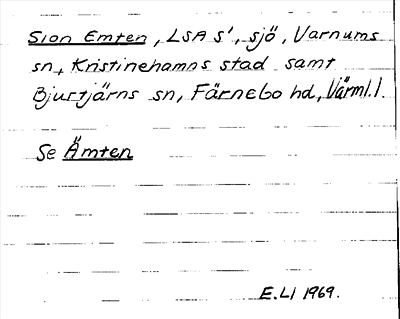 Sion Emten, LSA s', sjö, Varnums
sn, Kristinehamns stad samt
Bjurtjärns sn, Färnebo hd, Värml. l.
Se Ämten
E.LI 1969.